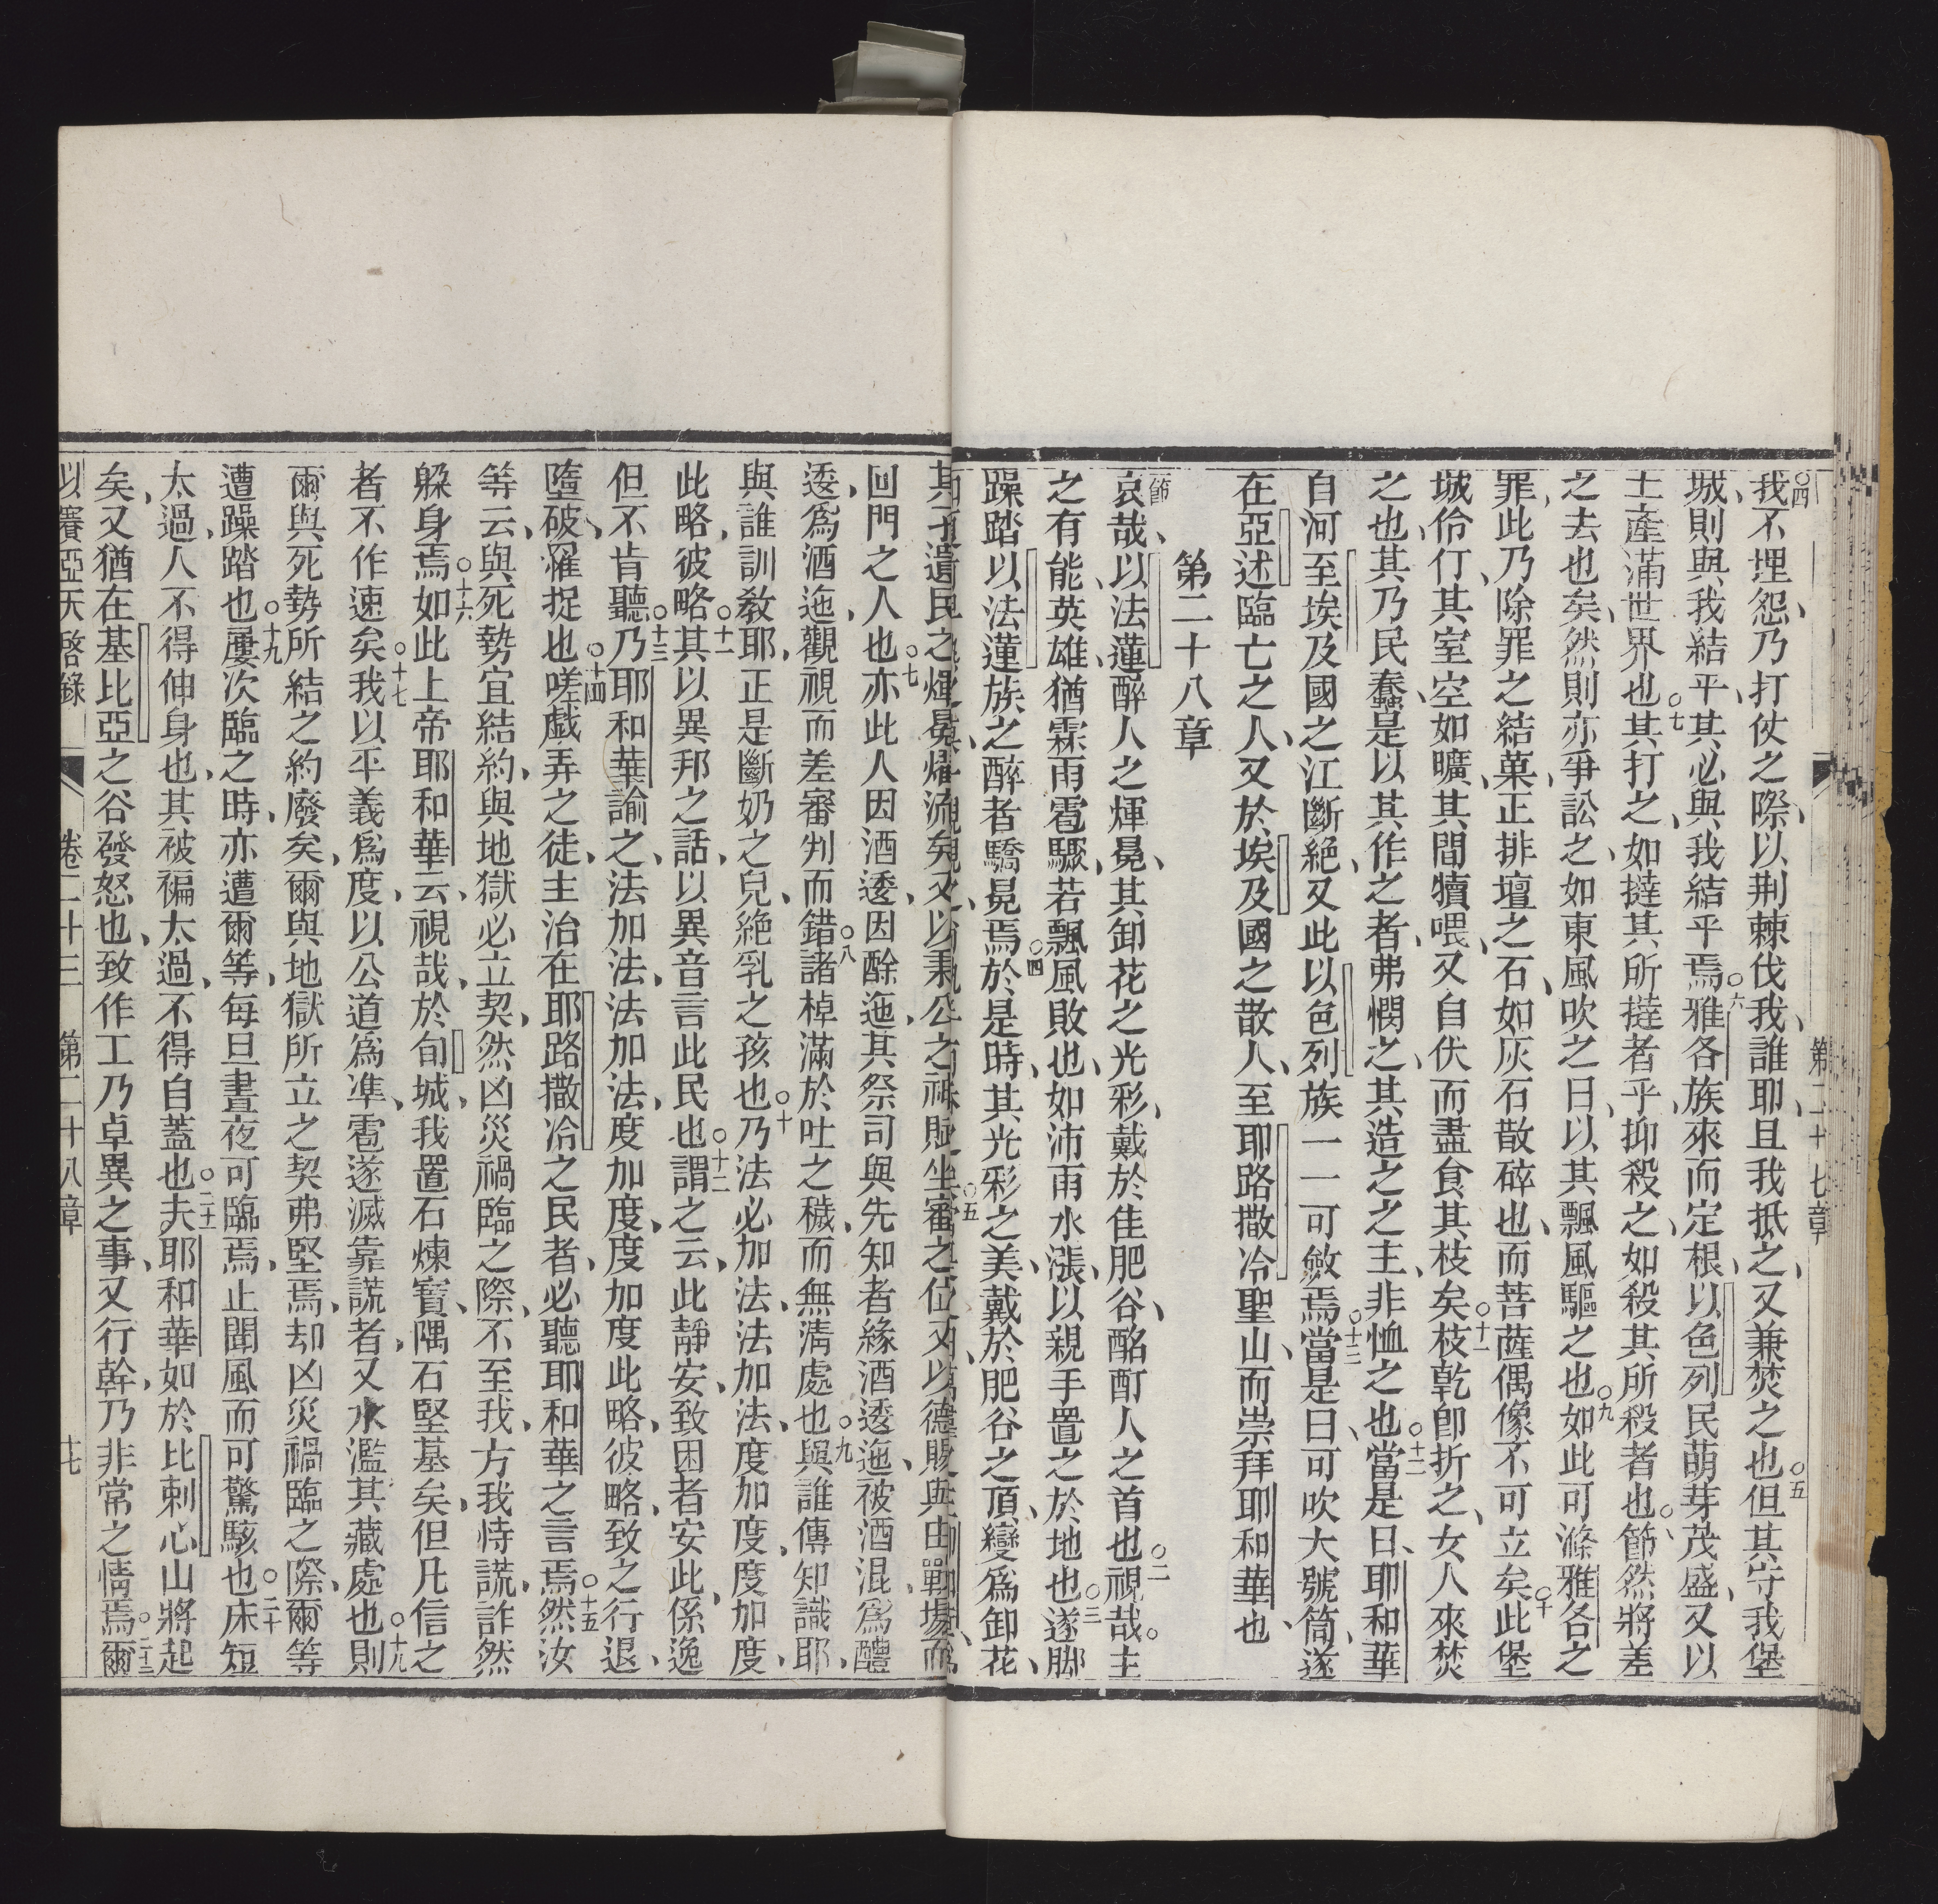 第二十七章
○四我不埋怨、乃打仗之際、以荆棘伐我、誰耶、且我抵之、又兼焚之也○五但其守我堡
城、則與我結平、其必與我結平焉○六雅各族來而定根、以色列民萌芽茂盛、又以
土產滿世界也○七其打之、如撻其所撻者乎、抑殺之、如殺其所殺者也○八節然將差
之去也矣、然則亦爭訟之、如東風吹之日、以其飄風驅之也○九如此可滌雅各之
罪、此乃除罪之結菓、正排壇之石、如灰石散碎也、而菩薩偶像不可立矣○十此堡
城伶仃、其室空如曠、其間犢喂、又自伏而盡食其枝矣○十一枝乾卽折之、女人來焚
之也、其乃民蠢、是以其作之者、弗憫之、其造之之主、非恤之也○十二當是日、耶和華
自河至埃及國之江斷絶、又此以色列族一一可斂焉○十三當是日、可吹大號筒、遂
在亞述臨亡之人、又於埃及國之散人、至耶路撒冷聖山、而崇拜耶和華也、
第二十八章
節哀哉、以法蓮醉人之煇冕、其卸花之光彩、戴於佳肥谷、酩酊人之首也○二視哉。主
之有能、英雄、猶霖雨雹驟、若飄風敗也、如沛雨水漲、以親手置之於地也○三遂脚
躁踏以法蓮族之醉者驕冕焉○四於是時、其光彩之美、戴於肥谷之頂、變爲卸花、
其遺民之煇冕、又以秉公之賜坐審之位、又以德賜與由戰場而
回門之人也○七亦此人因酒逶、因酴迤、其祭司與先知者緣酒逶迤、被酒混、爲醴
逶、爲酒迤、觀視而差審判而錯○八諸棹滿於吐之穢、而無淸處也○九與誰傳知識耶、
與誰訓敎耶、正是斷奶之兒、絶乳之孩也○十乃法必加法、法加法、度加度、度加度、
此略、彼略○十一其以異邦之話、以異音言此民也○十二謂之云、此靜安、致困者安此、係逸
但不肯聽○十三乃耶和華諭之、法加法、法加法、度加度、度加度、此略、彼略、致之行退、
墮破、羅捉也○十四嗟戲弄之徒、主治在耶路撒冾之民者、必聽耶和華之言焉○十五然汝
等云、與死勢宜結約、與地獄必立契、然凶災禍臨之際、不至我、方我恃謊、詐然
躲身焉○十六如此上帝耶和華云、視哉、於旬城、我置石煉寶、隅石堅基矣、但凡信之
者不作速矣○十七我以平義爲度、以公道爲準、雹遂滅靠謊者、又水濫其藏處也○十八則
爾與死勢所結之約廢矣、爾與地獄所立之契弗堅焉、却凶災禍臨之際、爾等
遭躁踏也○十九屢次臨之時、亦遭爾等、每旦晝夜可臨焉、止聞風而可驚駭也○二十床短
太過、人不得伸身也、其被褊太過、不得自蓋也○二十一夫耶和華如於比剌心山將起
矣、又猶在基比亞之谷發怒也、致作工乃卓異之事、又行幹、乃非常之情焉○二十二爾
以賽亞天啓錄 卷二十三 第二十八章 十七